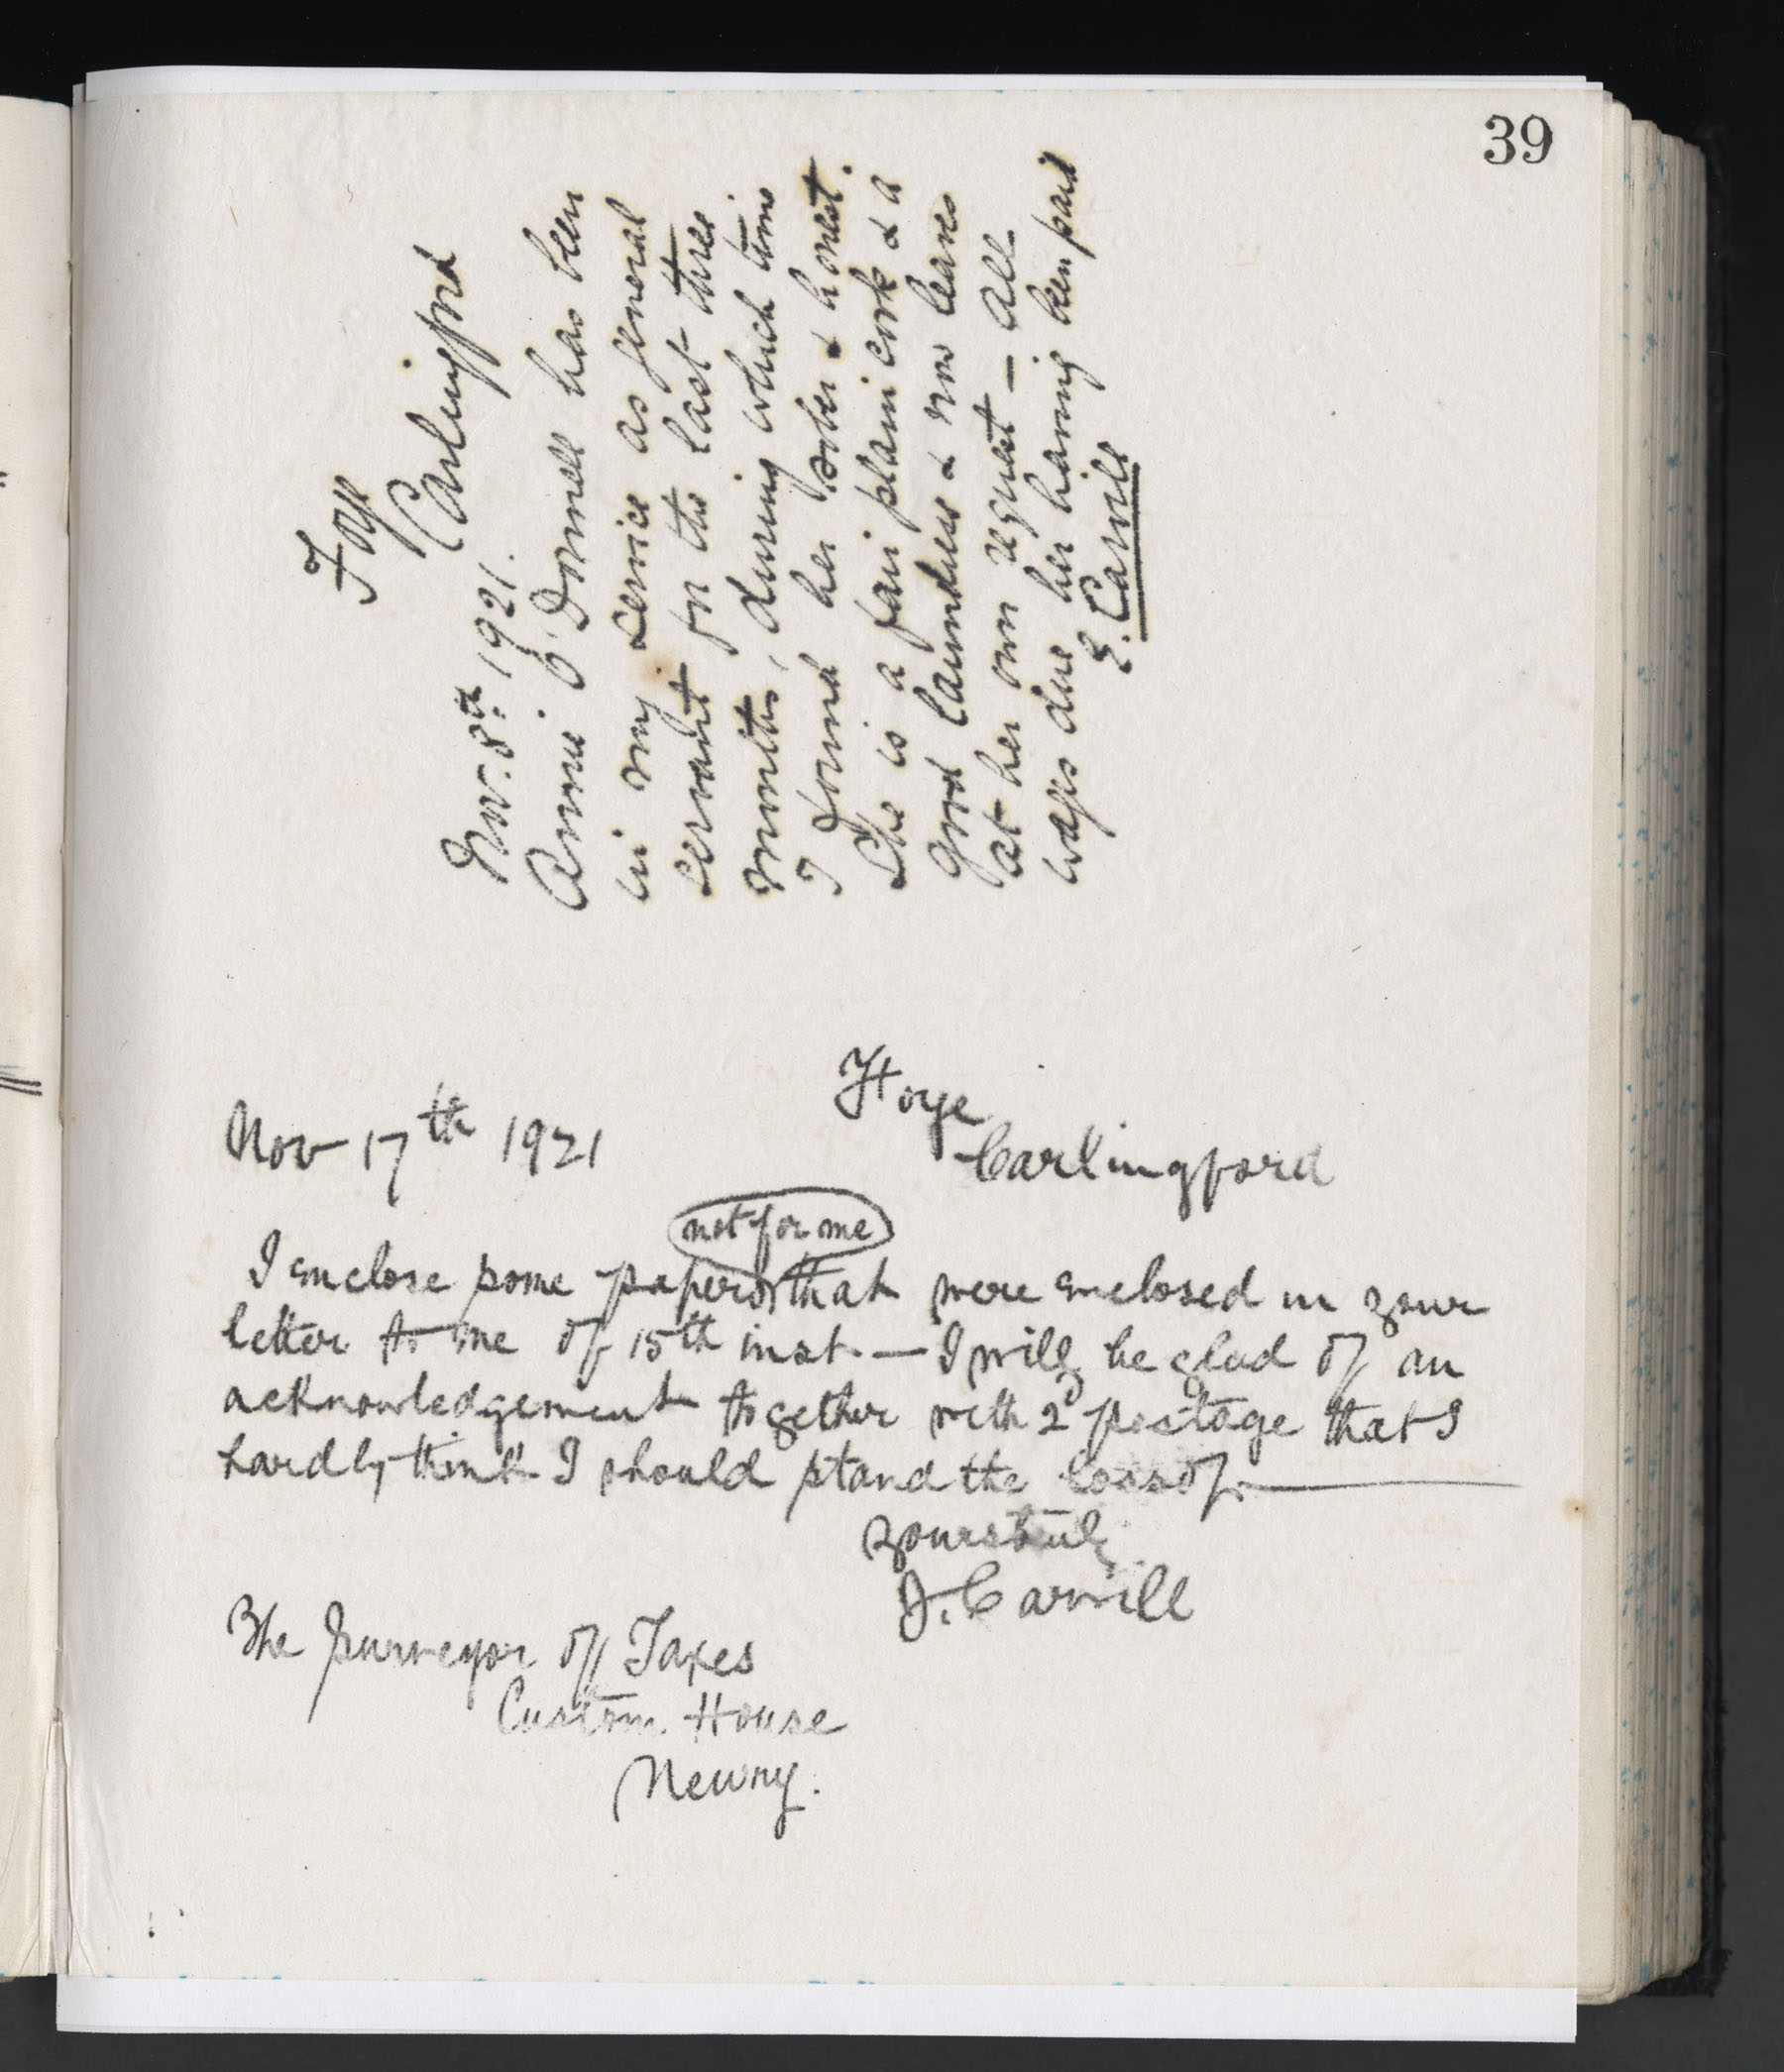 39
Foye
Carlingford
Nov. 8th 1921.
Annie O'Donnell has been
in my service as general
servant for the last three
months, during which time
I found her sober & honest.
She is a fair plain cook & a
good laundress & now leaves
at her own request — all
wages due her having been paid
E. Carvill
Foye
Carlingford
Nov 17th 1921
not for me
I enclose some papers that were enclosed in your
letter to me of 15th inst. — I will be glad of an
acknowledgement together with 2d postage that I
hardly think I should stand the loss of.
yours truly
J. Carvill
The Surveyor of Taxes
Custom House
Newry.